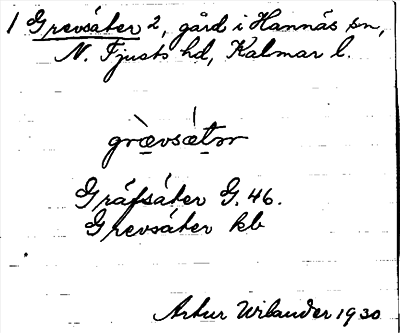 1 Grevsäter 2, gård i Hannäs sn,
N. Tjusts hd, Kalmar l.
grævsætər
Gräfsäter G. 46.
Grevsäter kb
Artur Wilander 1930